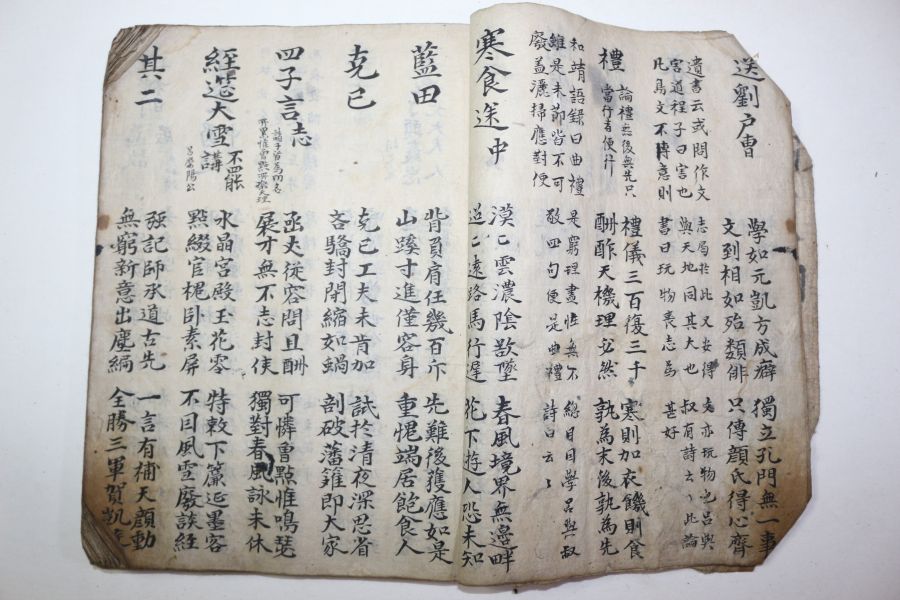 送劉戶曹
學如元凱方成癖 獨立孔門無一事
文到相如殆類俳 只傳顔氏得心齊
遺書云或問作文
害道程子曰害也
凡爲文不專意則
志局於此又安得
與天地同其大也
書曰玩物喪志爲
文亦玩物也呂與
叔有詩云云此論
甚好
禮
論禮然後無先只
當行者便行
禮儀三百復三千 寒則加衣饑則食
酬酢天機理必然 孰為末後孰為先
和靖語錄曰曲禮
雖是末節皆不可
廢盖灑掃應對便
是窮理盡性無不
敬四句便是曲禮
總目目學呂與叔
詩曰云〻
寒食送中
漠〻雲濃陰欲墜 春風境界無邊畔
迢〻遠路馬行遲 花下游人恐未知
藍田
背負肩任幾百斤 先難後獲應如是
山蹊寸進僅容身 重愧端居飽食人
克己
克己工夫未肯加 試於清夜深思省
吝驕封閉縮如蝸 剖破藩籬即大家
四子言志
函丈從容問且酬 可憐曾點惟鳴瑟
展才無不志封侯 獨對春風詠未休
經筵大雪不罷講
呂滎陽公
水晶宮殿玉花零 特敕下簾延墨客
點綴官槐卧素屏 不因風雪廢談經
其二
强記師承道古先 一言有補天顔動
無窮新意出塵編 全勝三軍賀凱旋